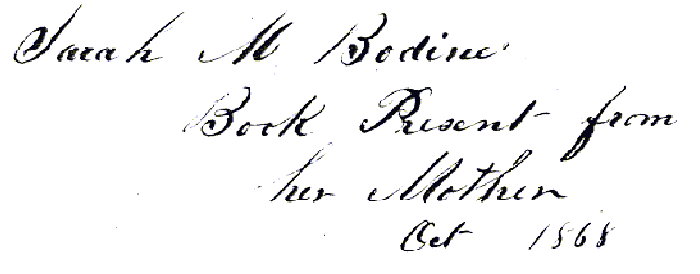 Sarah M Bodine
Book Present from
her Mother
Oct 1868